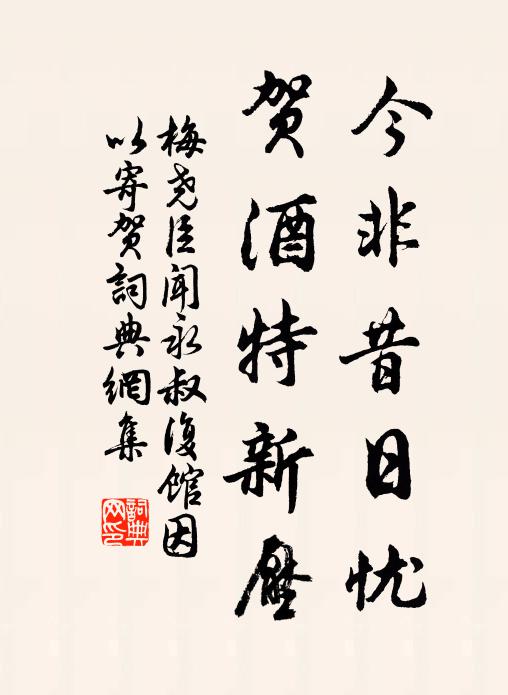 今非昔日忧
贺酒特新压
梅尧臣闻永叔复馆因
以寄贺词典网集
词典网印